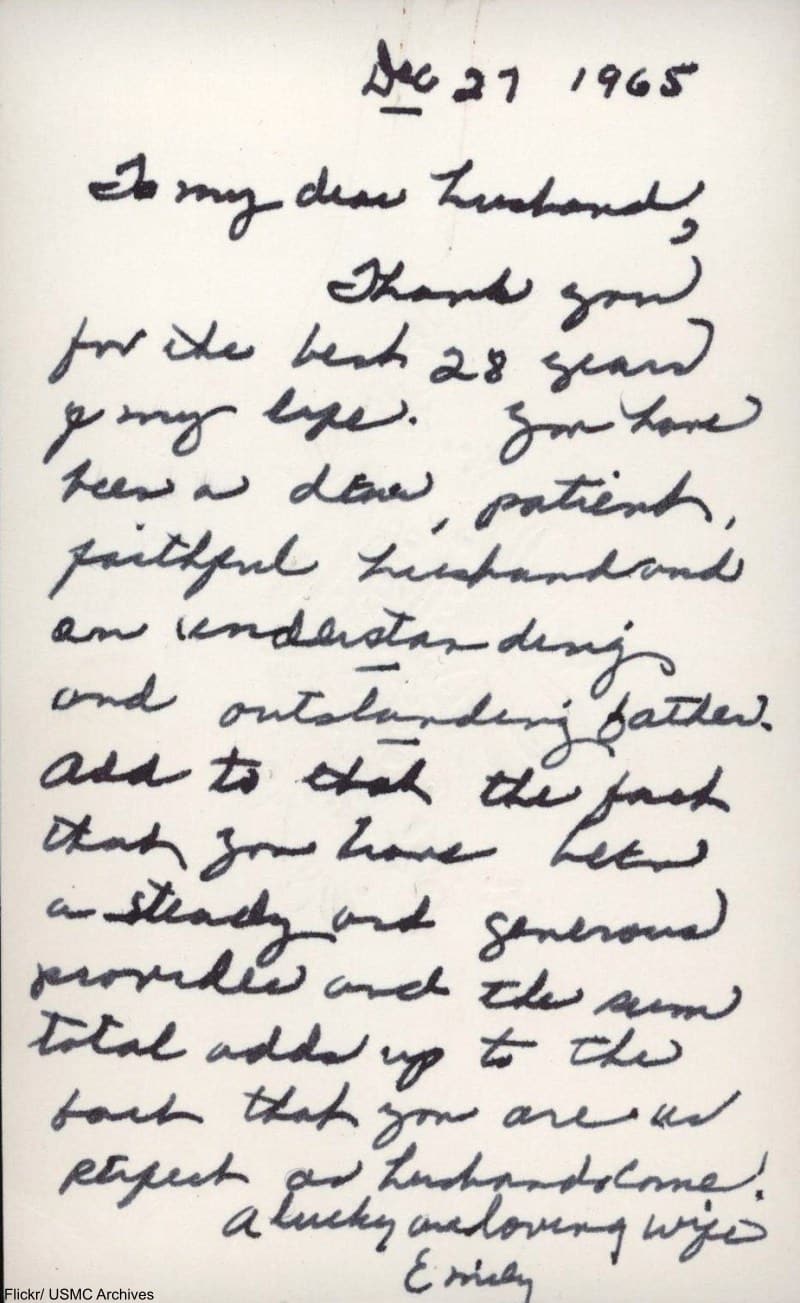 Dec 27 1965
To my dear husband,
Thank you
for the best 28 years
of my life. You have
been a dear, patient,
faithful husband and
an understanding
and outstanding father.
Add to that the fact
that you have been
a steady and generous
provider and the sum
total adds up to the
fact that you are as
perfect as husbands come!
A lucky and loving wife
Emily
Flickr/ USMC Archives